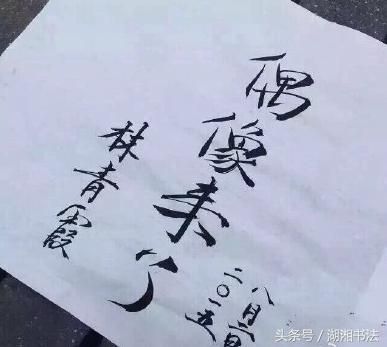 偶像来了
林青霞
二〇一五
八月日
头条号 / 湖湘书法